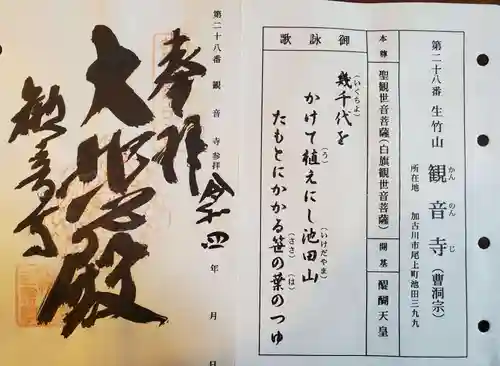 第二十八番 生竹山 観音寺(曹洞宗)
かんのんじ
所在地 加古川市尾上町池田三九九
本尊 聖観世音菩薩(白旗観世音菩薩) 開基 醍醐天皇
御詠歌
幾千代を
(いくちよ)
かけて植えにし池田山
(う) (いけだやま)
たもとにかかる笹の葉のつゆ
(ささ) (は)
第二十八番 観音寺参拝 年 月 日
奉拝 令和四
大悲殿
観音寺